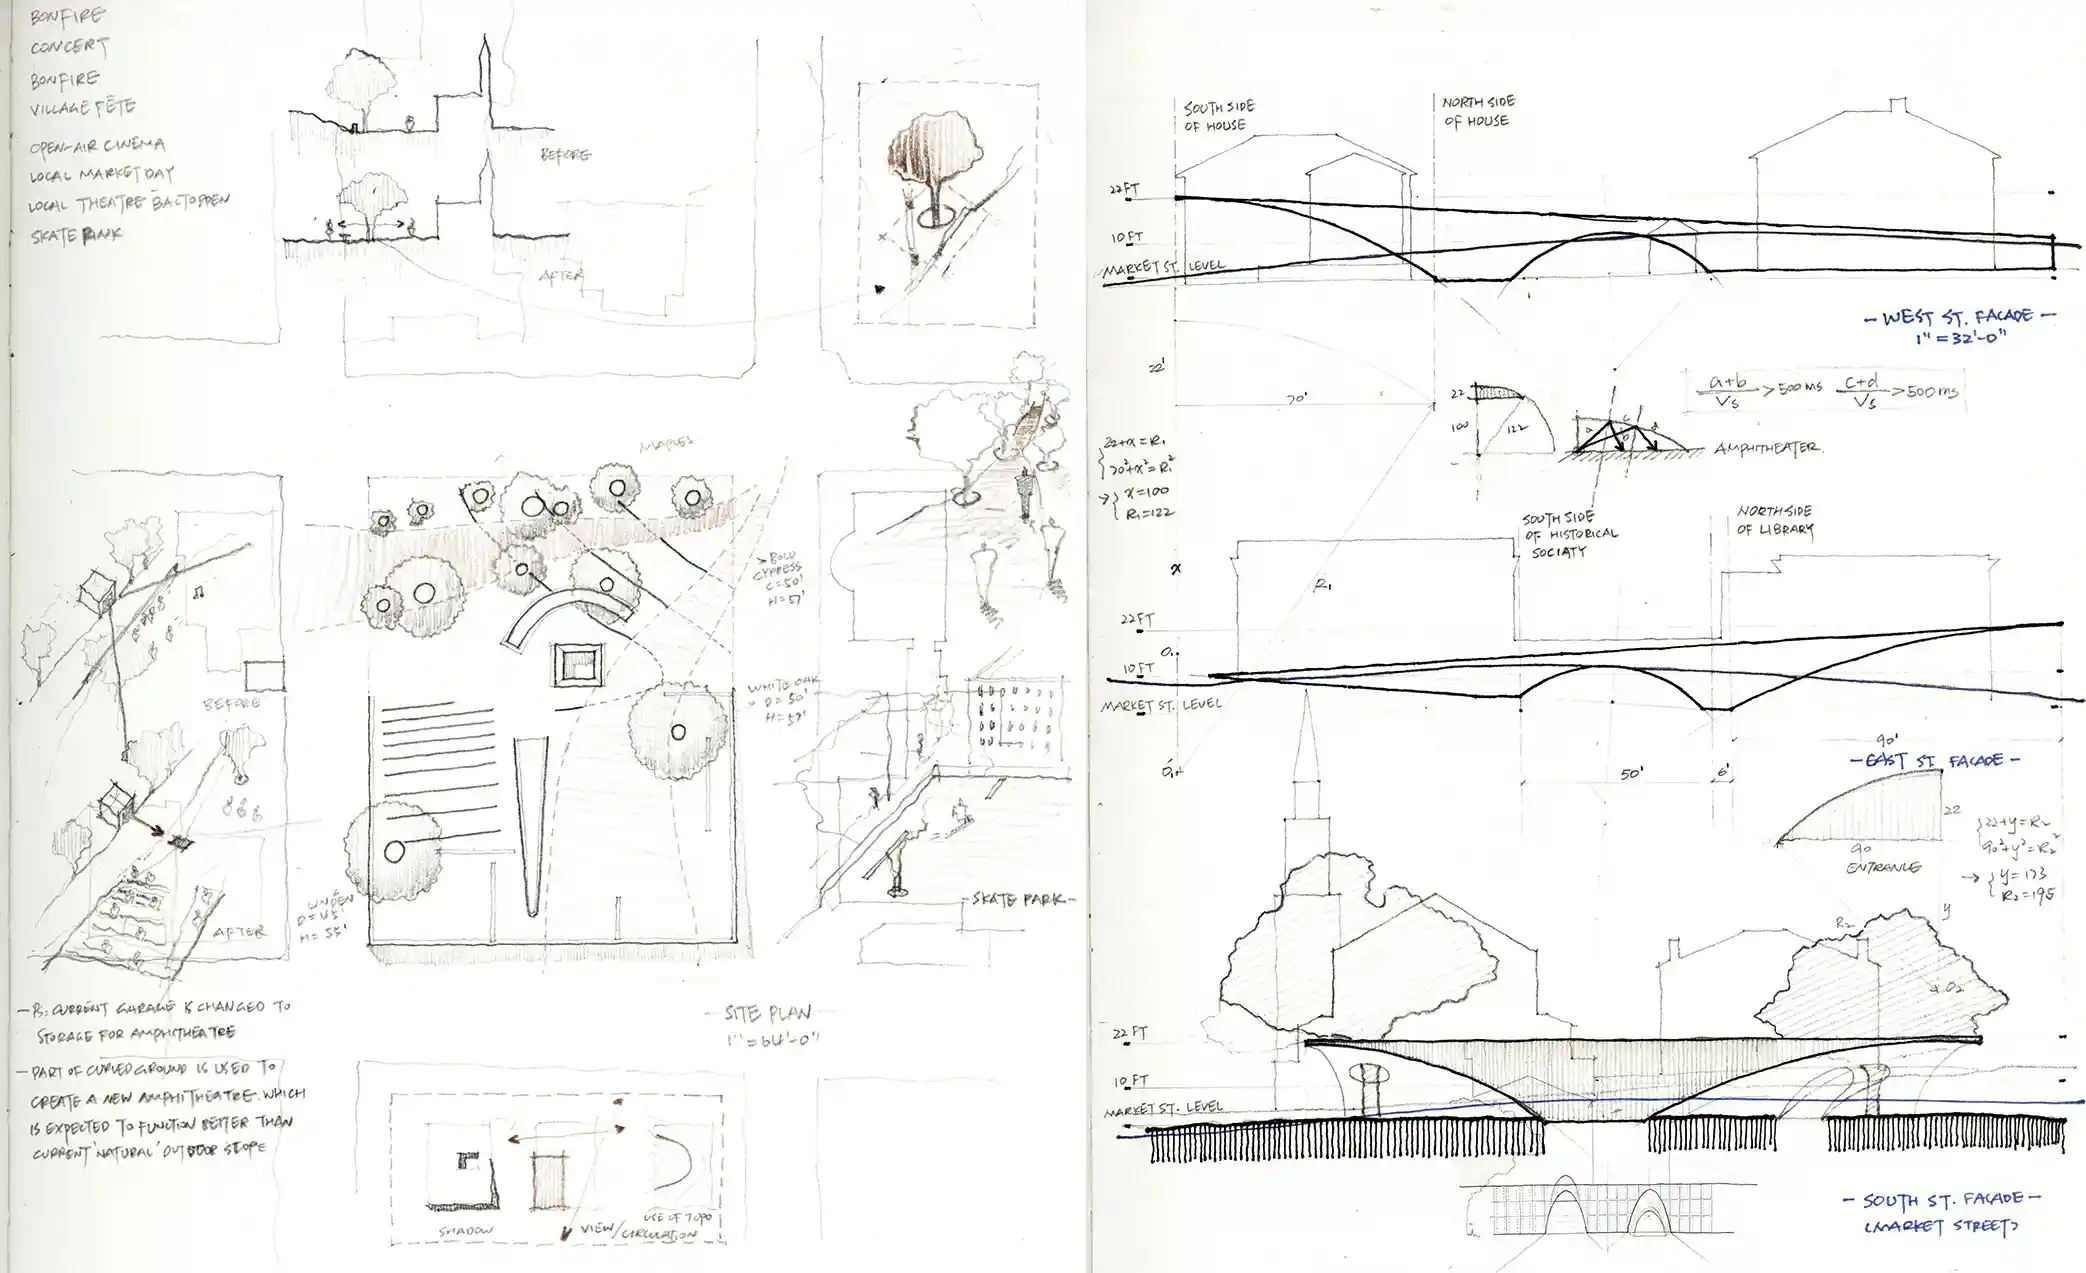 BONFIRE
CONCERT
BONFIRE
VILLAGE FÊTE
OPEN-AIR CINEMA
LOCAL MARKET DAY
LOCAL THEATRE
SKATE RINK
BEFORE
AFTER
MAPLES
CYPRESS
C=50'
H=57'
WHITE OAK
D=50'
H=57'
BEFORE
AFTER
LINDEN
D=45'
H=55'
-SKATE PARK-
-PS: CURRENT GARAGE IS CHANGED TO
STORAGE FOR AMPHITHEATRE
-PART OF CURVED GROUND IS USED TO
CREATE A NEW AMPHITHEATRE. WHICH
IS EXPECTED TO FUNCTION BETTER THAN
CURRENT 'NATURAL' OUTDOOR SLOPE
-SITE PLAN-
1"=64'-0"
SHADOW
VIEW/CIRCULATION
USE OF TOPO
SOUTH SIDE
OF HOUSE
NORTH SIDE
OF HOUSE
22FT
10FT
MARKET ST. LEVEL
-WEST ST. FACADE-
1"=32'-0"
22'
70'
22
100
122
a+b/Vs >500ms c+d/Vs >500ms
a
c
b
d
AMPHITHEATER.
22+x=R1
70²+x²=R1²
→ x=100
R1=122
SOUTH SIDE
OF HISTORICAL
SOCIATY
NORTH SIDE
OF LIBRARY
x
R1
22FT
10FT
MARKET ST. LEVEL
50'
6'
90'
-EAST ST. FACADE-
22
90
ENTRANCE
22+y=R2
90²+y²=R2²
→ y=173
R2=195
R2
y
O2
22FT
10FT
MARKET ST. LEVEL
-SOUTH ST. FACADE-
(MARKET STREET)